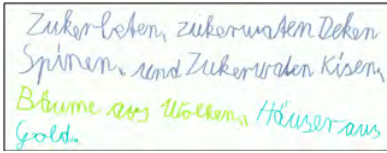 Zukerbeten, zukerwaten Deken
Spinen, und Zukerwaten Kisen,
Bäume aus Wolken, Häuser aus
Gold.